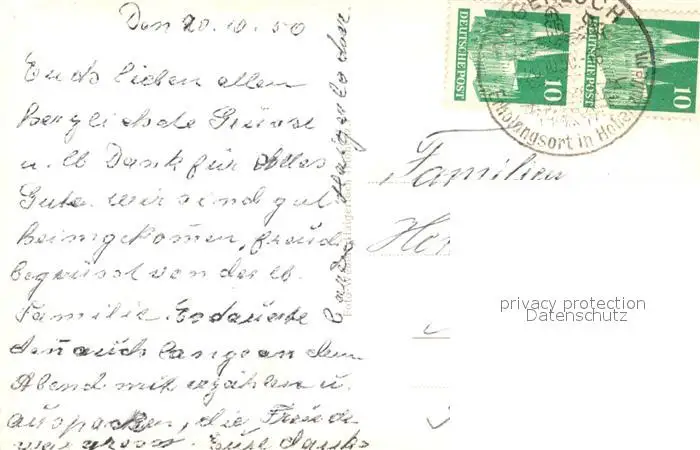 Den 20.10.50
Euch lieben allen
herzlichste Grüsse
u. lb Dank für Alles
Gute. wir sind gut
heimgekommen, freudig
begrüsst von der lb.
Familie. Es dauerte
denn auch lange an dem
Abend mit erzählen u.
auspacken, die Freude
war gross. Eure dankb
Haigerloch
DEUTSCHE POST
10
DEUTSCHE POST
10
HAIGERLOCH
Erholungsort in Hohenz
Familien
privacy protection
Datenschutz